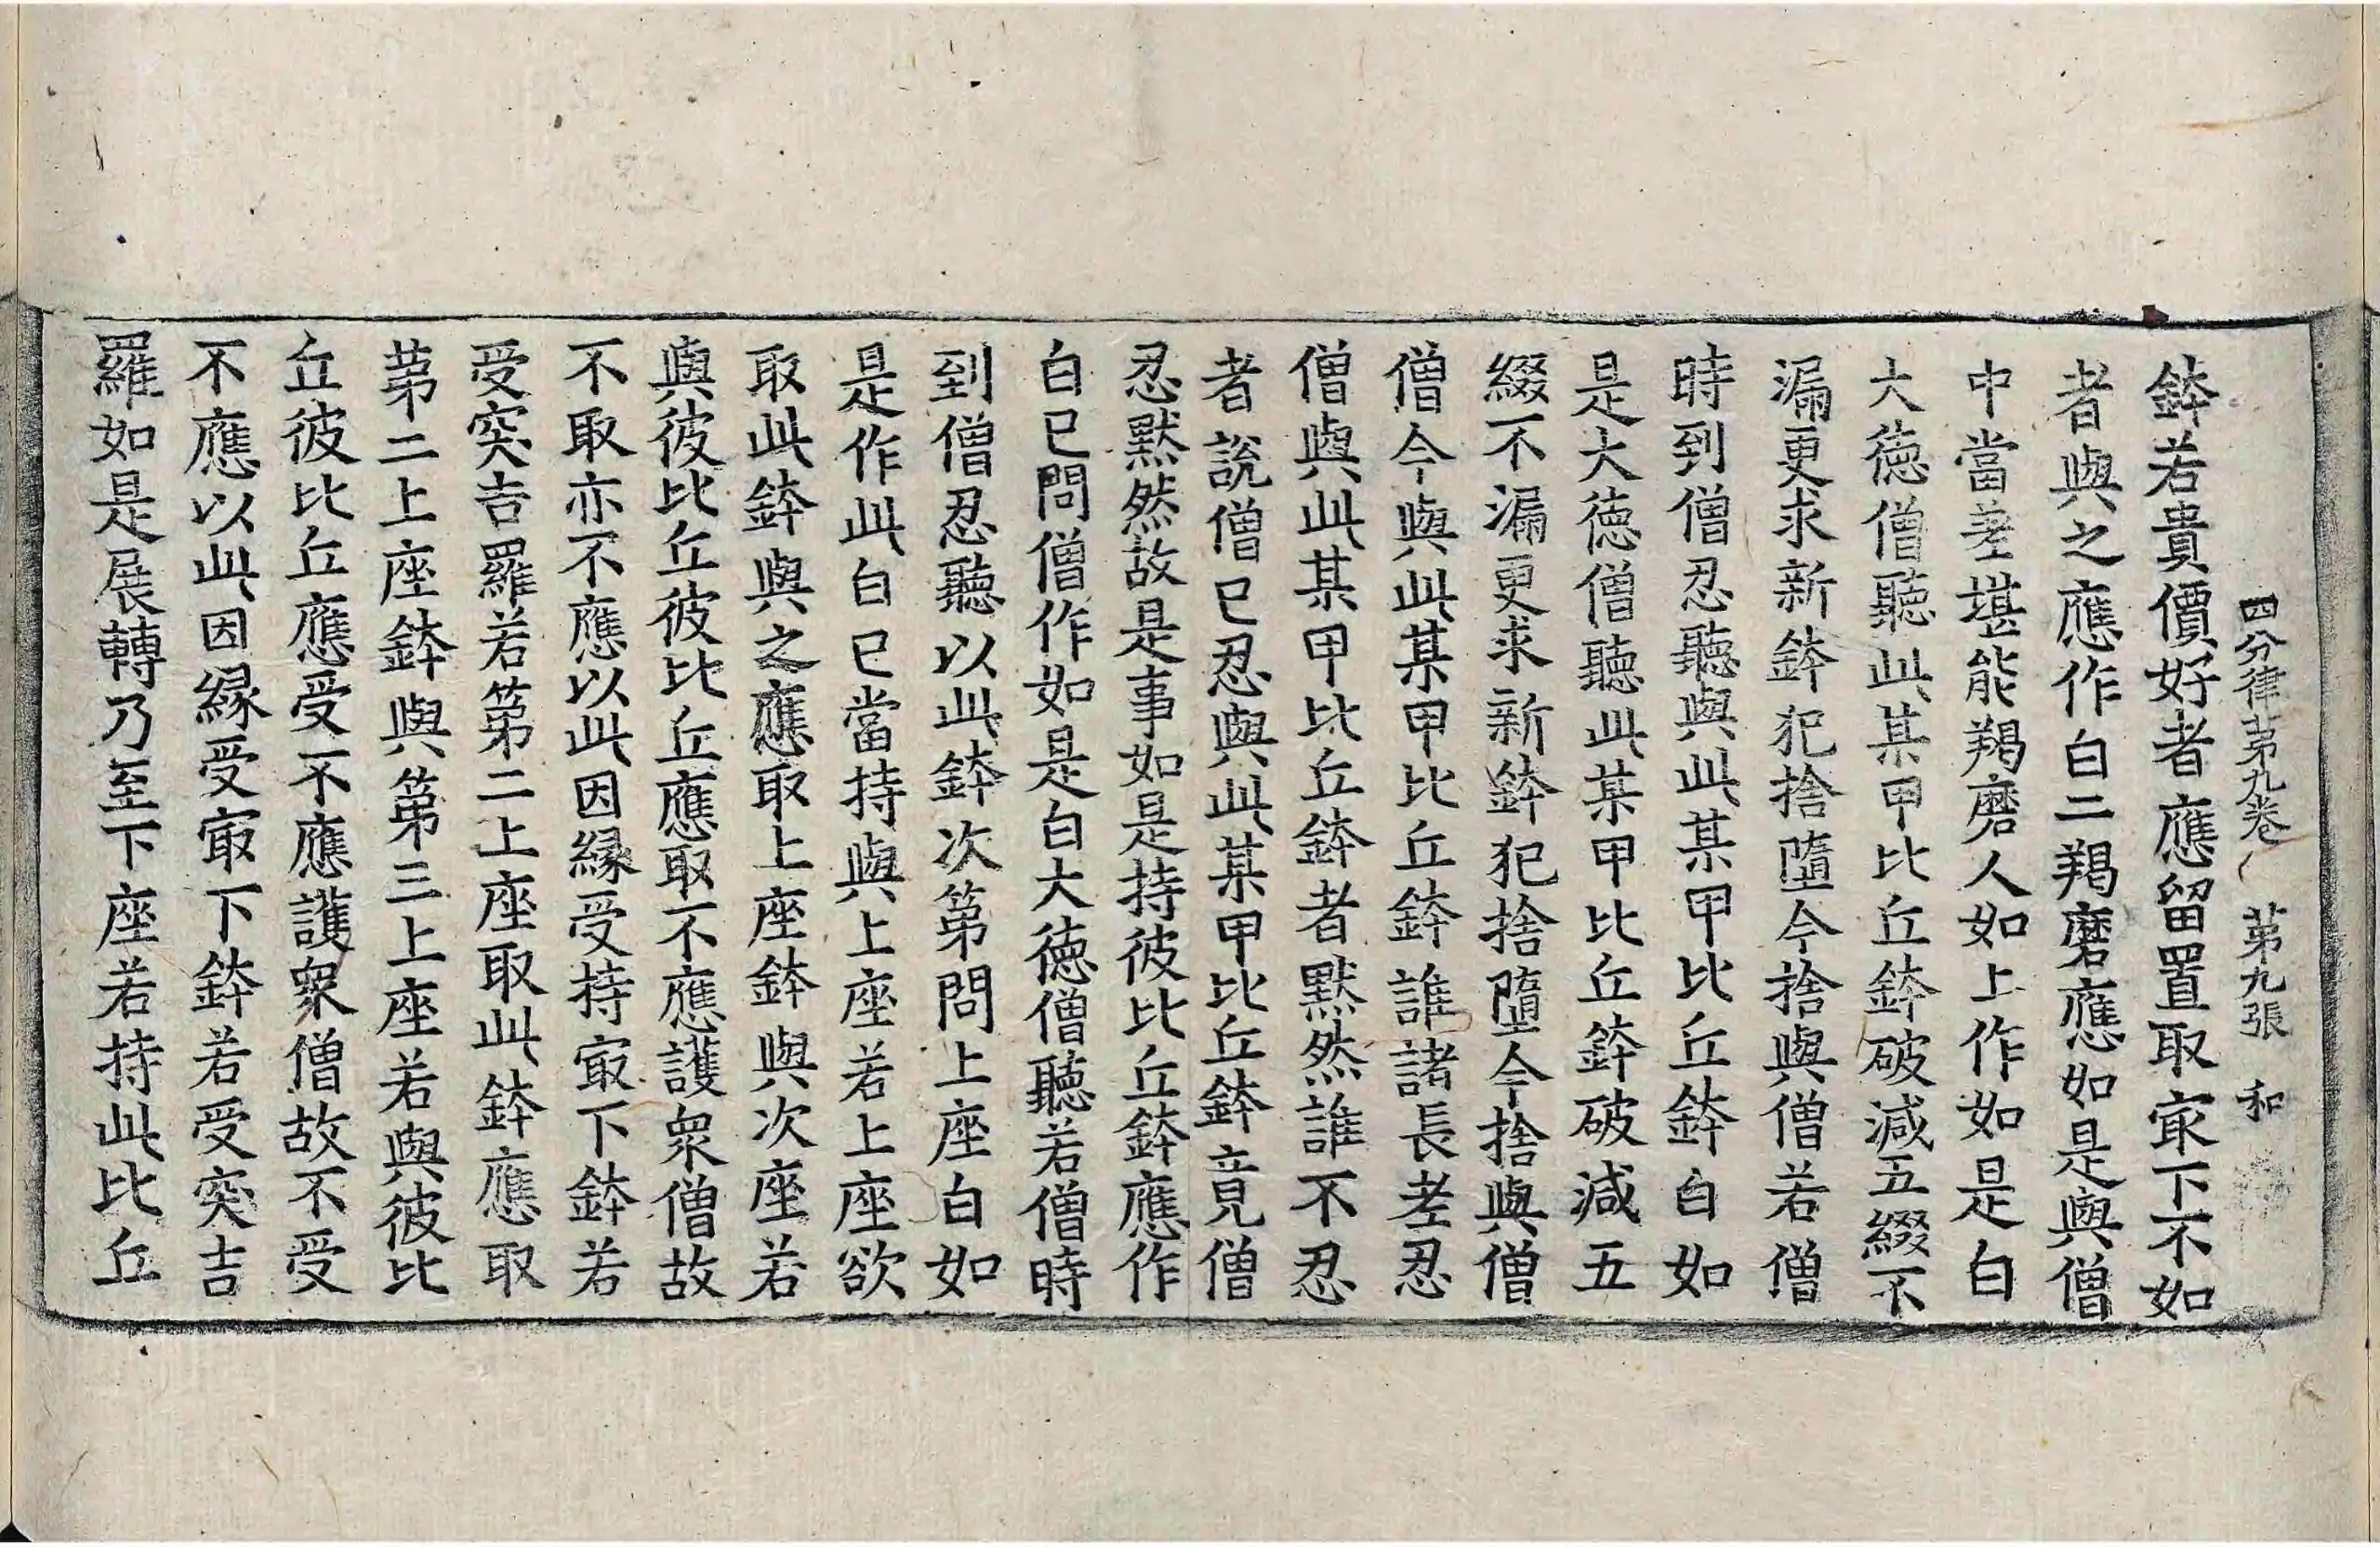 四分律苐九卷 苐九張 和
鉢若貴價好者應留置取㝡下不如
者與之應作白二羯磨應如是與僧
中當差堪能羯磨人如上作如是白
大德僧聽此某甲比丘鉢破減五綴不
漏更求新鉢犯捨墮今捨與僧若僧
時到僧忍聽與此某甲比丘鉢白如
是大德僧聽此某甲比丘鉢破減五
綴不漏更求新鉢犯捨墮今捨與僧
僧今與此某甲比丘鉢誰諸長老忍
僧與此某甲比丘鉢者默然誰不忍
者說僧已忍與此某甲比丘鉢竟僧
忍默然故是事如是持彼比丘鉢應作
白已問僧作如是白大德僧聽若僧時
到僧忍聽以此鉢次第問上座白如
是作此白已當持與上座若上座欲
取此鉢與之應取上座鉢與次座若
與彼比丘彼比丘應取不應護衆僧故
不取亦不應以此因緣受持㝡下鉢若
受突吉羅若第二上座取此鉢應取
苐二上座鉢與第三上座若與彼比
丘彼比丘應受不應護衆僧故不受
不應以此因緣受㝡下鉢若受突吉
羅如是展轉乃至下座若持此比丘